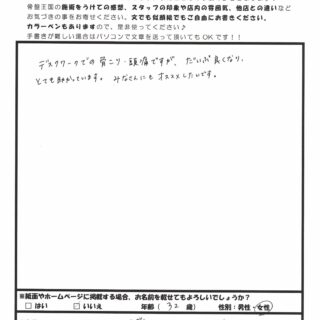 骨盤王国の施術をうけての感想、スタッフの印象や店内の雰囲気、他店との違いなど
お気づきの事をお寄せください。文でも似顔絵でもご自由にお書きください。
カラーペンもありますので、是非使ってください♪
手書きが難しい場合はパソコンで文章を送って頂いてもOKです!!
デスクワークでの肩こり・頭痛ですが、だいぶ良くなり、
とても助かっています。みなさんにもオススメしたいです。
※紙面やホームページに掲載する場合、お名前を載せてもよろしいでしょうか?
□はい □いいえ 年齢(32歳) 性別:男性・女性